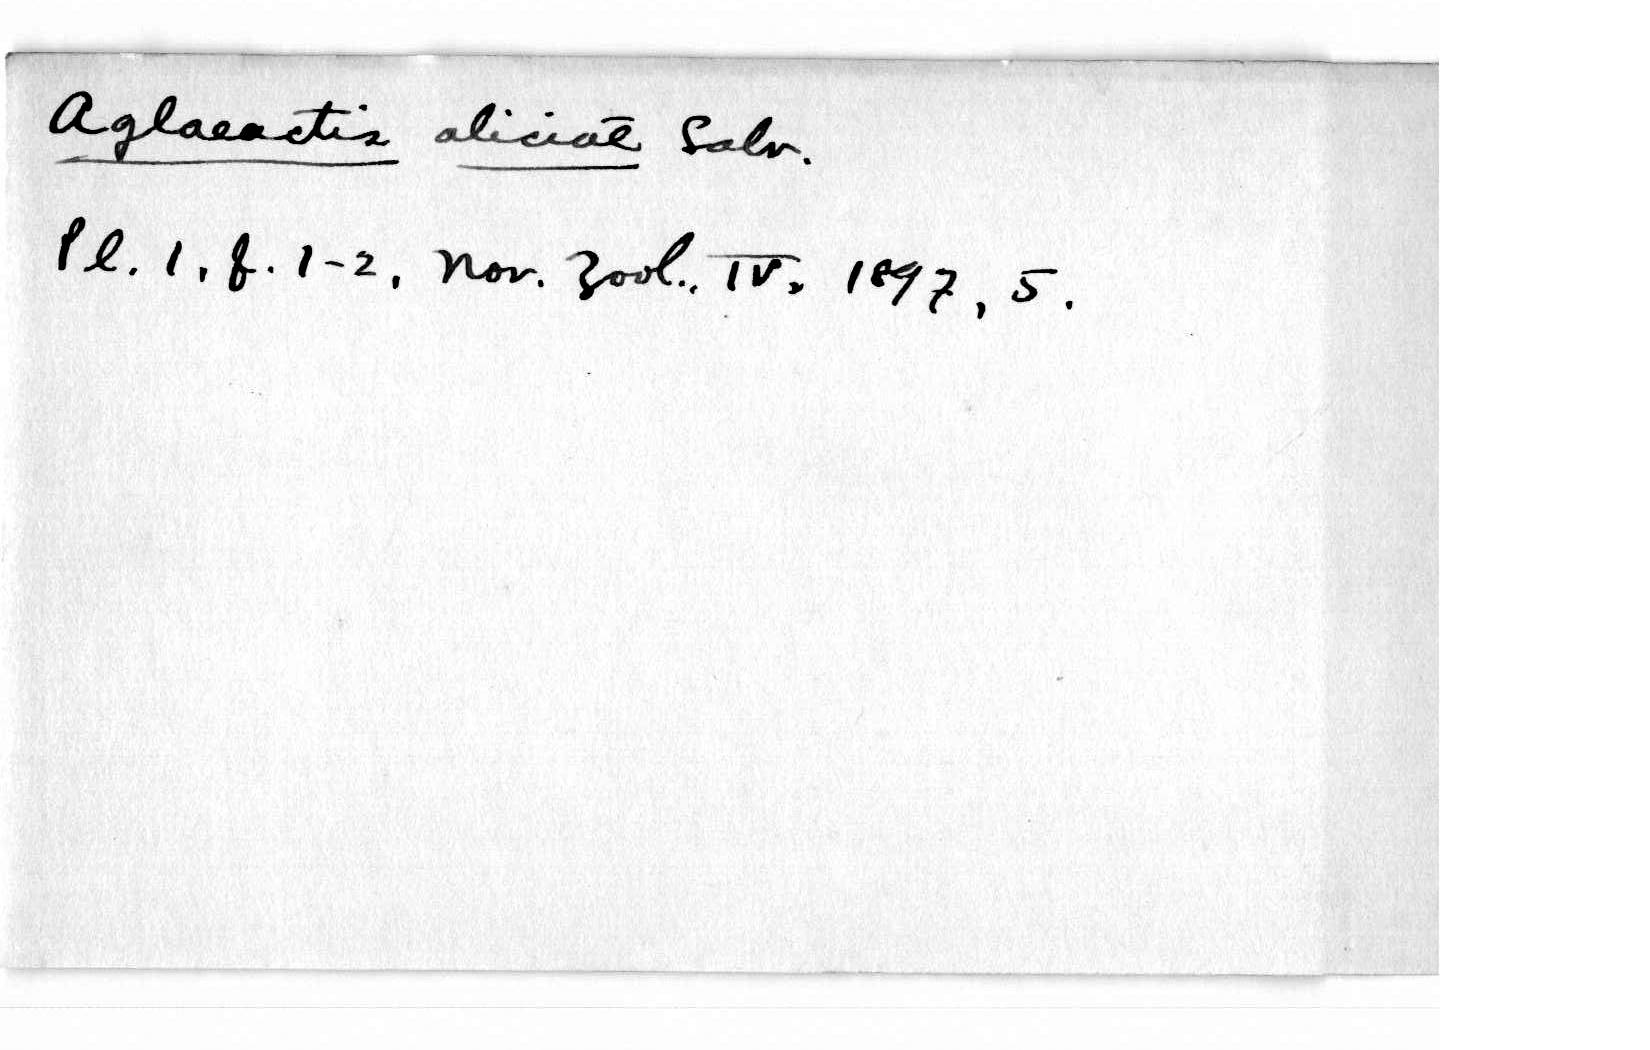 Aglaeactis aliciae Salv.
Pl. 1, f. 1-2, Nov. Zool., IV, 1897, 5.